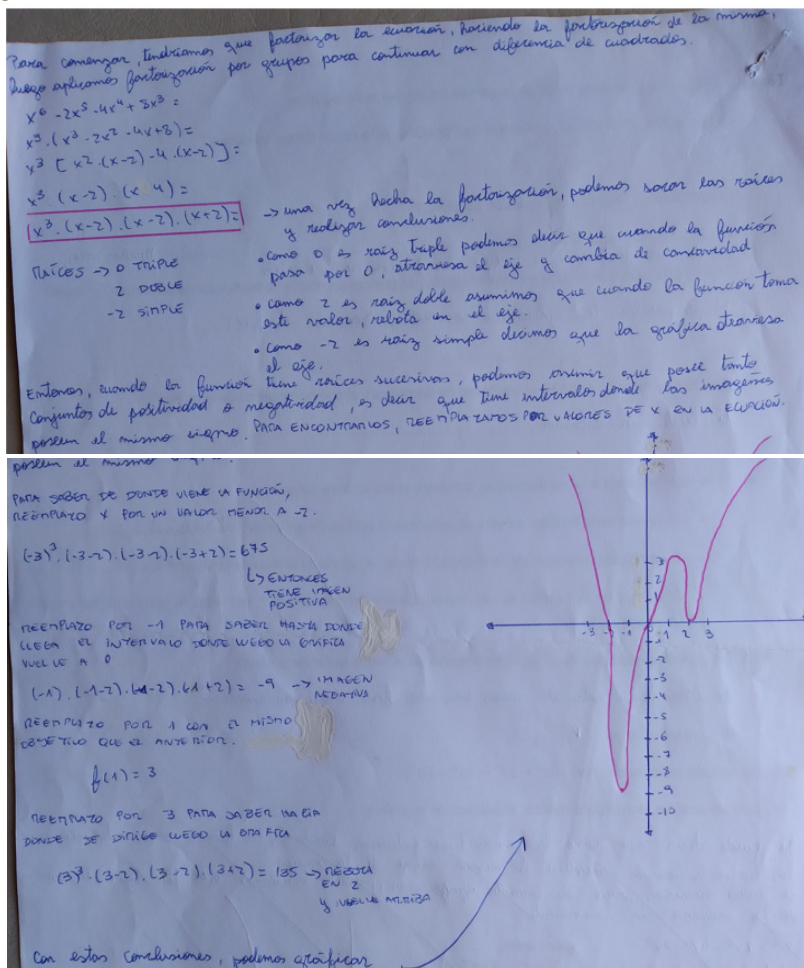 Para comenzar, tendríamos que factorizar la ecuación, haciendo la factorización de la misma,
luego aplicamos factorización por grupos para continuar con diferencia de cuadrados.
x⁶ - 2x⁵ - 4x⁴ + 8x³ =
x³ . (x³ - 2x² - 4x + 8) =
x³ [x² . (x-2) - 4 . (x-2)] =
x³ (x-2) . (x 4) =
x³ . (x-2) . (x-2) . (x+2) =
RAÍCES → 0 TRIPLE
2 DOBLE
-2 SIMPLE
→ una vez hecha la factorización, podemos sacar las raíces
y realizar conclusiones.
• como 0 es raíz triple podemos decir que cuando la función
pasa por 0, atraviesa el eje y cambia de concavidad
• como 2 es raíz doble asumimos que cuando la función toma
este valor, rebota en el eje.
• como -2 es raíz simple decimos que la gráfica atraviesa
el eje.
Entonces, cuando la función tiene raíces sucesivas, podemos asumir que posee tanto
conjuntos de positividad o negatividad, es decir que tiene intervalos donde las imágenes
poseen el mismo signo. PARA ENCONTRARLOS, REEMPLAZAMOS POR VALORES DE X EN LA ECUACIÓN.
poseen el mismo
PARA SABER DE DONDE VIENE LA FUNCIÓN,
REEMPLAZO X POR UN VALOR MENOR A -2.
(-3)³ . (-3-2) . (-3-2) . (-3+2) = 675
↳ ENTONCES
TIENE IMAGEN
POSITIVA
REEMPLAZO POR -1 PARA SABER HASTA DONDE
LLEGA EL INTERVALO DONDE LUEGO LA GRÁFICA
VUELVE A 0
(-1) . (-1-2) . (-1-2) . (-1+2) = -9 → IMAGEN
NEGATIVA
REEMPLAZO POR 1 CON EL MISMO
OBJETIVO QUE EL ANTERIOR.
f(1) = 3
REEMPLAZO POR 3 PARA SABER HACIA
DONDE SE DIRIGE LUEGO LA GRAFICA
(3)³ . (3-2) . (3-2) . (3+2) = 135 → REBOTA
EN 2
y VUELVE ARRIBA
Con estas conclusiones, podemos gráficar
3
2
1
-3 -2 -1 0 1 2 3
-2
-3
-4
-5
-6
-7
-8
-9
-10